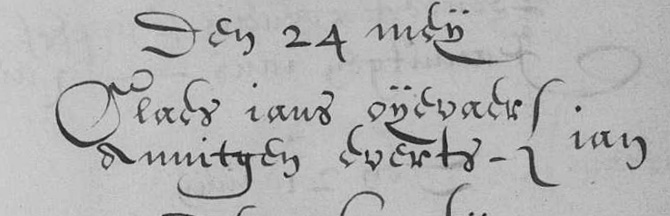 Den 24 meÿ
Claes ians oÿevaer
Annitgen everts - ian